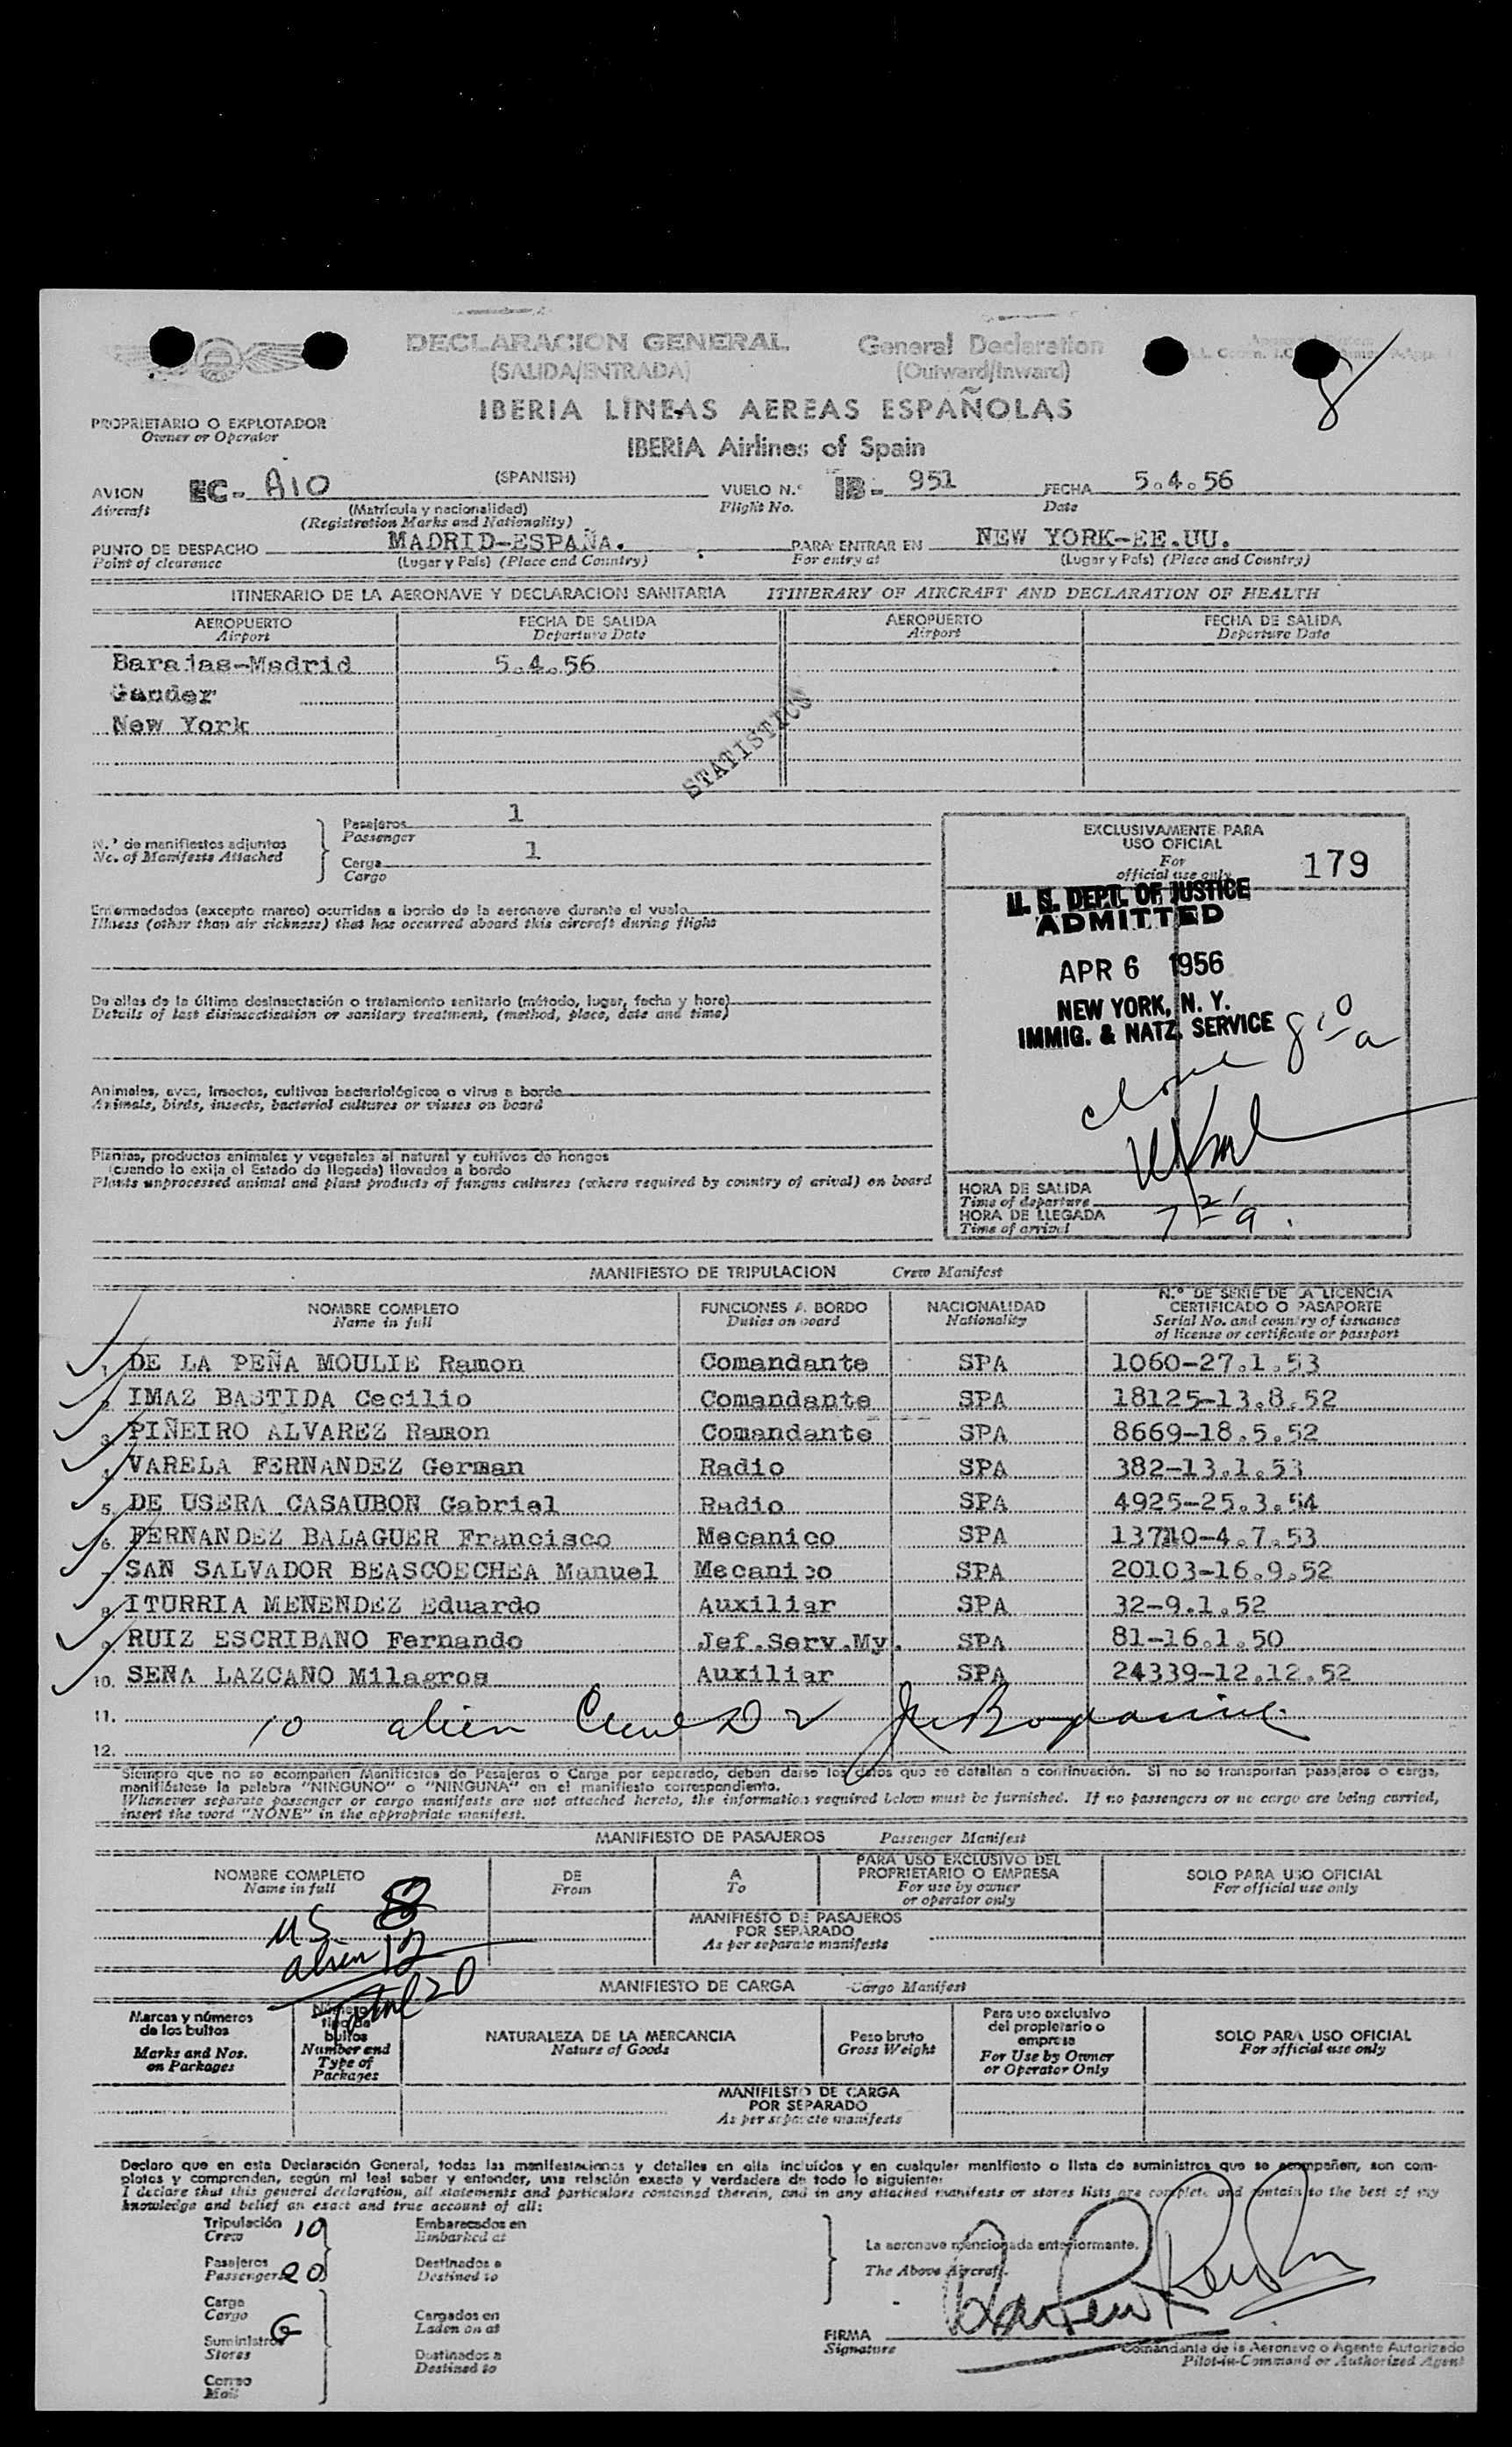 DECLARACION GENERAL General Declaration
(SALIDA/ENTRADA) (Outward/Inward)
IBERIA LINEAS AEREAS ESPAÑOLAS
PROPRIETARIO O EXPLOTADOR
Owner or Operator
IBERIA Airlines of Spain
8
(SPANISH)
AVION EC- AIO VUELO N.º IB- 951 FECHA 5.4.56
Aircraft (Matrícula y nacionalidad) Flight No. Date
(Registration Marks and Nationality)
PUNTO DE DESPACHO MADRID-ESPAÑA. PARA ENTRAR EN NEW YORK-EE.UU.
Point of clearance (Lugar y País) (Place and Country) For entry at (Lugar y País) (Place and Country)
ITINERARIO DE LA AERONAVE Y DECLARACION SANITARIA ITINERARY OF AIRCRAFT AND DECLARATION OF HEALTH
AEROPUERTO FECHA DE SALIDA AEROPUERTO FECHA DE SALIDA
Airport Departure Date Airport Departure Date
Barajas-Madrid 5.4.56
Gander
New York
STATISTICS
N.º de manifiestos adjuntos
No. of Manifests Attached
Pasajeros 1
Passenger
Carga 1
Cargo
EXCLUSIVAMENTE PARA
USO OFICIAL
For
official use only
179
U. S. DEPT. OF JUSTICE
ADMITTED
APR 6 1956
NEW YORK, N. Y.
IMMIG. & NATZ. SERVICE
Enfermedades (excepto mareo) ocurridas a bordo de la aeronave durante el vuelo
Illness (other than air sickness) that has occurred aboard this aircraft during flight
Detalles de la última desinsectación o tratamiento sanitario (método, lugar, fecha y hora)
Details of last disinsectisation or sanitary treatment, (method, place, date and time)
Animales, aves, insectos, cultivos bacteriológicos o virus a bordo
Animals, birds, insects, bacterial cultures or viuses on board
Plantas, productos animales y vegetales al natural y cultivos de hongos
(cuando lo exija el Estado de llegada) llevados a bordo
Plants unprocessed animal and plant products of fungus cultures (where required by country of arival) on board
HORA DE SALIDA
Time of departure
HORA DE LLEGADA
Time of arrival
MANIFIESTO DE TRIPULACION Crew Manifest
NOMBRE COMPLETO FUNCIONES A BORDO NACIONALIDAD N.º DE SERIE DE LA LICENCIA
Name in full Duties on board Nationality CERTIFICADO O PASAPORTE
Serial No. and country of issuance
of license or certificate or passport
1. DE LA PEÑA MOULIE Ramon Comandante SPA 1060-27.1.53
2. IMAZ BASTIDA Cecilio Comandante SPA 18125-13.8.52
3. PIÑEIRO ALVAREZ Ramon Comandante SPA 8669-18.5.52
4. VARELA FERNANDEZ German Radio SPA 382-13.1.53
5. DE USERA CASAUBON Gabriel Radio SPA 4925-25.3.54
6. FERNANDEZ BALAGUER Francisco Mecanico SPA 13710-4.7.53
7. SAN SALVADOR BEASCOECHEA Manuel Mecanico SPA 20103-16.9.52
8. ITURRIA MENENDEZ Eduardo Auxiliar SPA 32-9.1.52
9. RUIZ ESCRIBANO Fernando Jef.Serv.My. SPA 81-16.1.50
10. SENA LAZCANO Milagros Auxiliar SPA 24339-12.12.52
11. 10 alien
12.
Siempre que no se acompañen Manifiestos de Pasajeros o Carga por separado, deben darse los datos que se detallan a continuación. Si no se transportan pasajeros o carga,
manifiéstese la palabra "NINGUNO" o "NINGUNA" en el manifiesto correspondiente.
Whenever separate passenger or cargo manifests are not attached hereto, the information required below must be furnished. If no passengers or no cargo are being carried,
insert the word "NONE" in the appropriate manifest.
MANIFIESTO DE PASAJEROS Passenger Manifest
NOMBRE COMPLETO DE A PARA USO EXCLUSIVO DEL SOLO PARA USO OFICIAL
Name in full From To PROPRIETARIO O EMPRESA For official use only
For use by owner
or operator only
MANIFIESTO DE PASAJEROS
POR SEPARADO
As per separate manifests
US 8
alien 12
total 20
MANIFIESTO DE CARGA Cargo Manifest
Marcas y números
de los bultos
Marks and Nos.
on Packages
Número y
tipo de
bultos
Number and
Type of
Packages
NATURALEZA DE LA MERCANCIA
Nature of Goods
Peso bruto
Gross Weight
Para uso exclusivo
del propietario o
empresa
For Use by Owner
or Operator Only
SOLO PARA USO OFICIAL
For official use only
MANIFIESTO DE CARGA
POR SEPARADO
As per separate manifests
Declaro que en esta Declaración General, todas las manifestaciones y detalles en ella incluidos y en cualquier manifiesto o lista de suministros que se acompañen, son com-
pletos y comprenden, según mi leal saber y entender, una relación exacta y verdadera de todo lo siguiente:
I declare that this general declaration, all statements and particulars contained therein, and in any attached manifests or stores lists are complete and contain to the best of my
knowledge and belief an exact and true account of all:
Tripulación 10 Embarcados en
Crew Embarked at
Pasajeros 20 Destinados a
Passengers Destined to
La aeronave mencionada anteriormente.
The Above Aircraft.
Carga
Cargo
Cargados en
Laden on at
Suministros
Stores
Destinados a
Destined to
Correo
Mail
FIRMA
Signature
Comandante de la Aeronave o Agente Autorizado
Pilot-in-Command or Authorized Agent